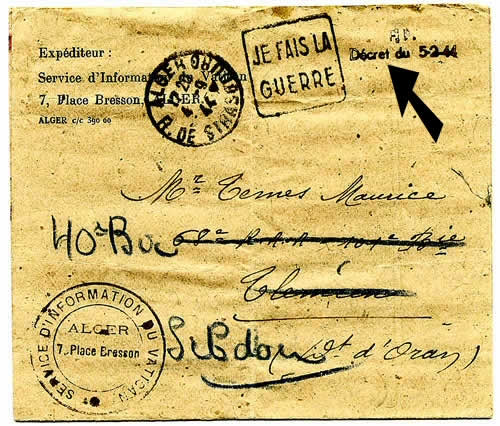 Expéditeur :
Service d'Information du Vatican
7, Place Bresson, ALGER.
ALGER c/c 390 00
ALGER
R. DE STRASBOURG
JE FAIS LA
GUERRE
Décret du 5-2-44
Mr Temes Maurice
40e
Sebdou
(Dt d'Oran)
SERVICE D'INFORMATION DU VATICAN
ALGER
7, Place Bresson